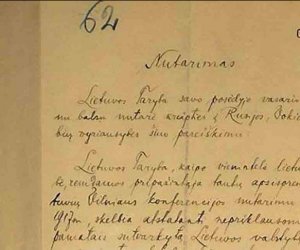 62
Nutarimas
Lietuvos Taryba savo posėdyje vasario
mu balsų nutarė kreiptis į Rusijos, Vokie
bių vyriausybes šiuo pareiškimu:
Lietuvos Taryba, kaipo vienintelė lietu
bė, remdamos pripažintąja tautų apsispren
tuvių Vilniaus konferencijos nutarimu
skelbia atstatanti nepriklausomą
pamatais sutvarkytą Lietuvos valstybę